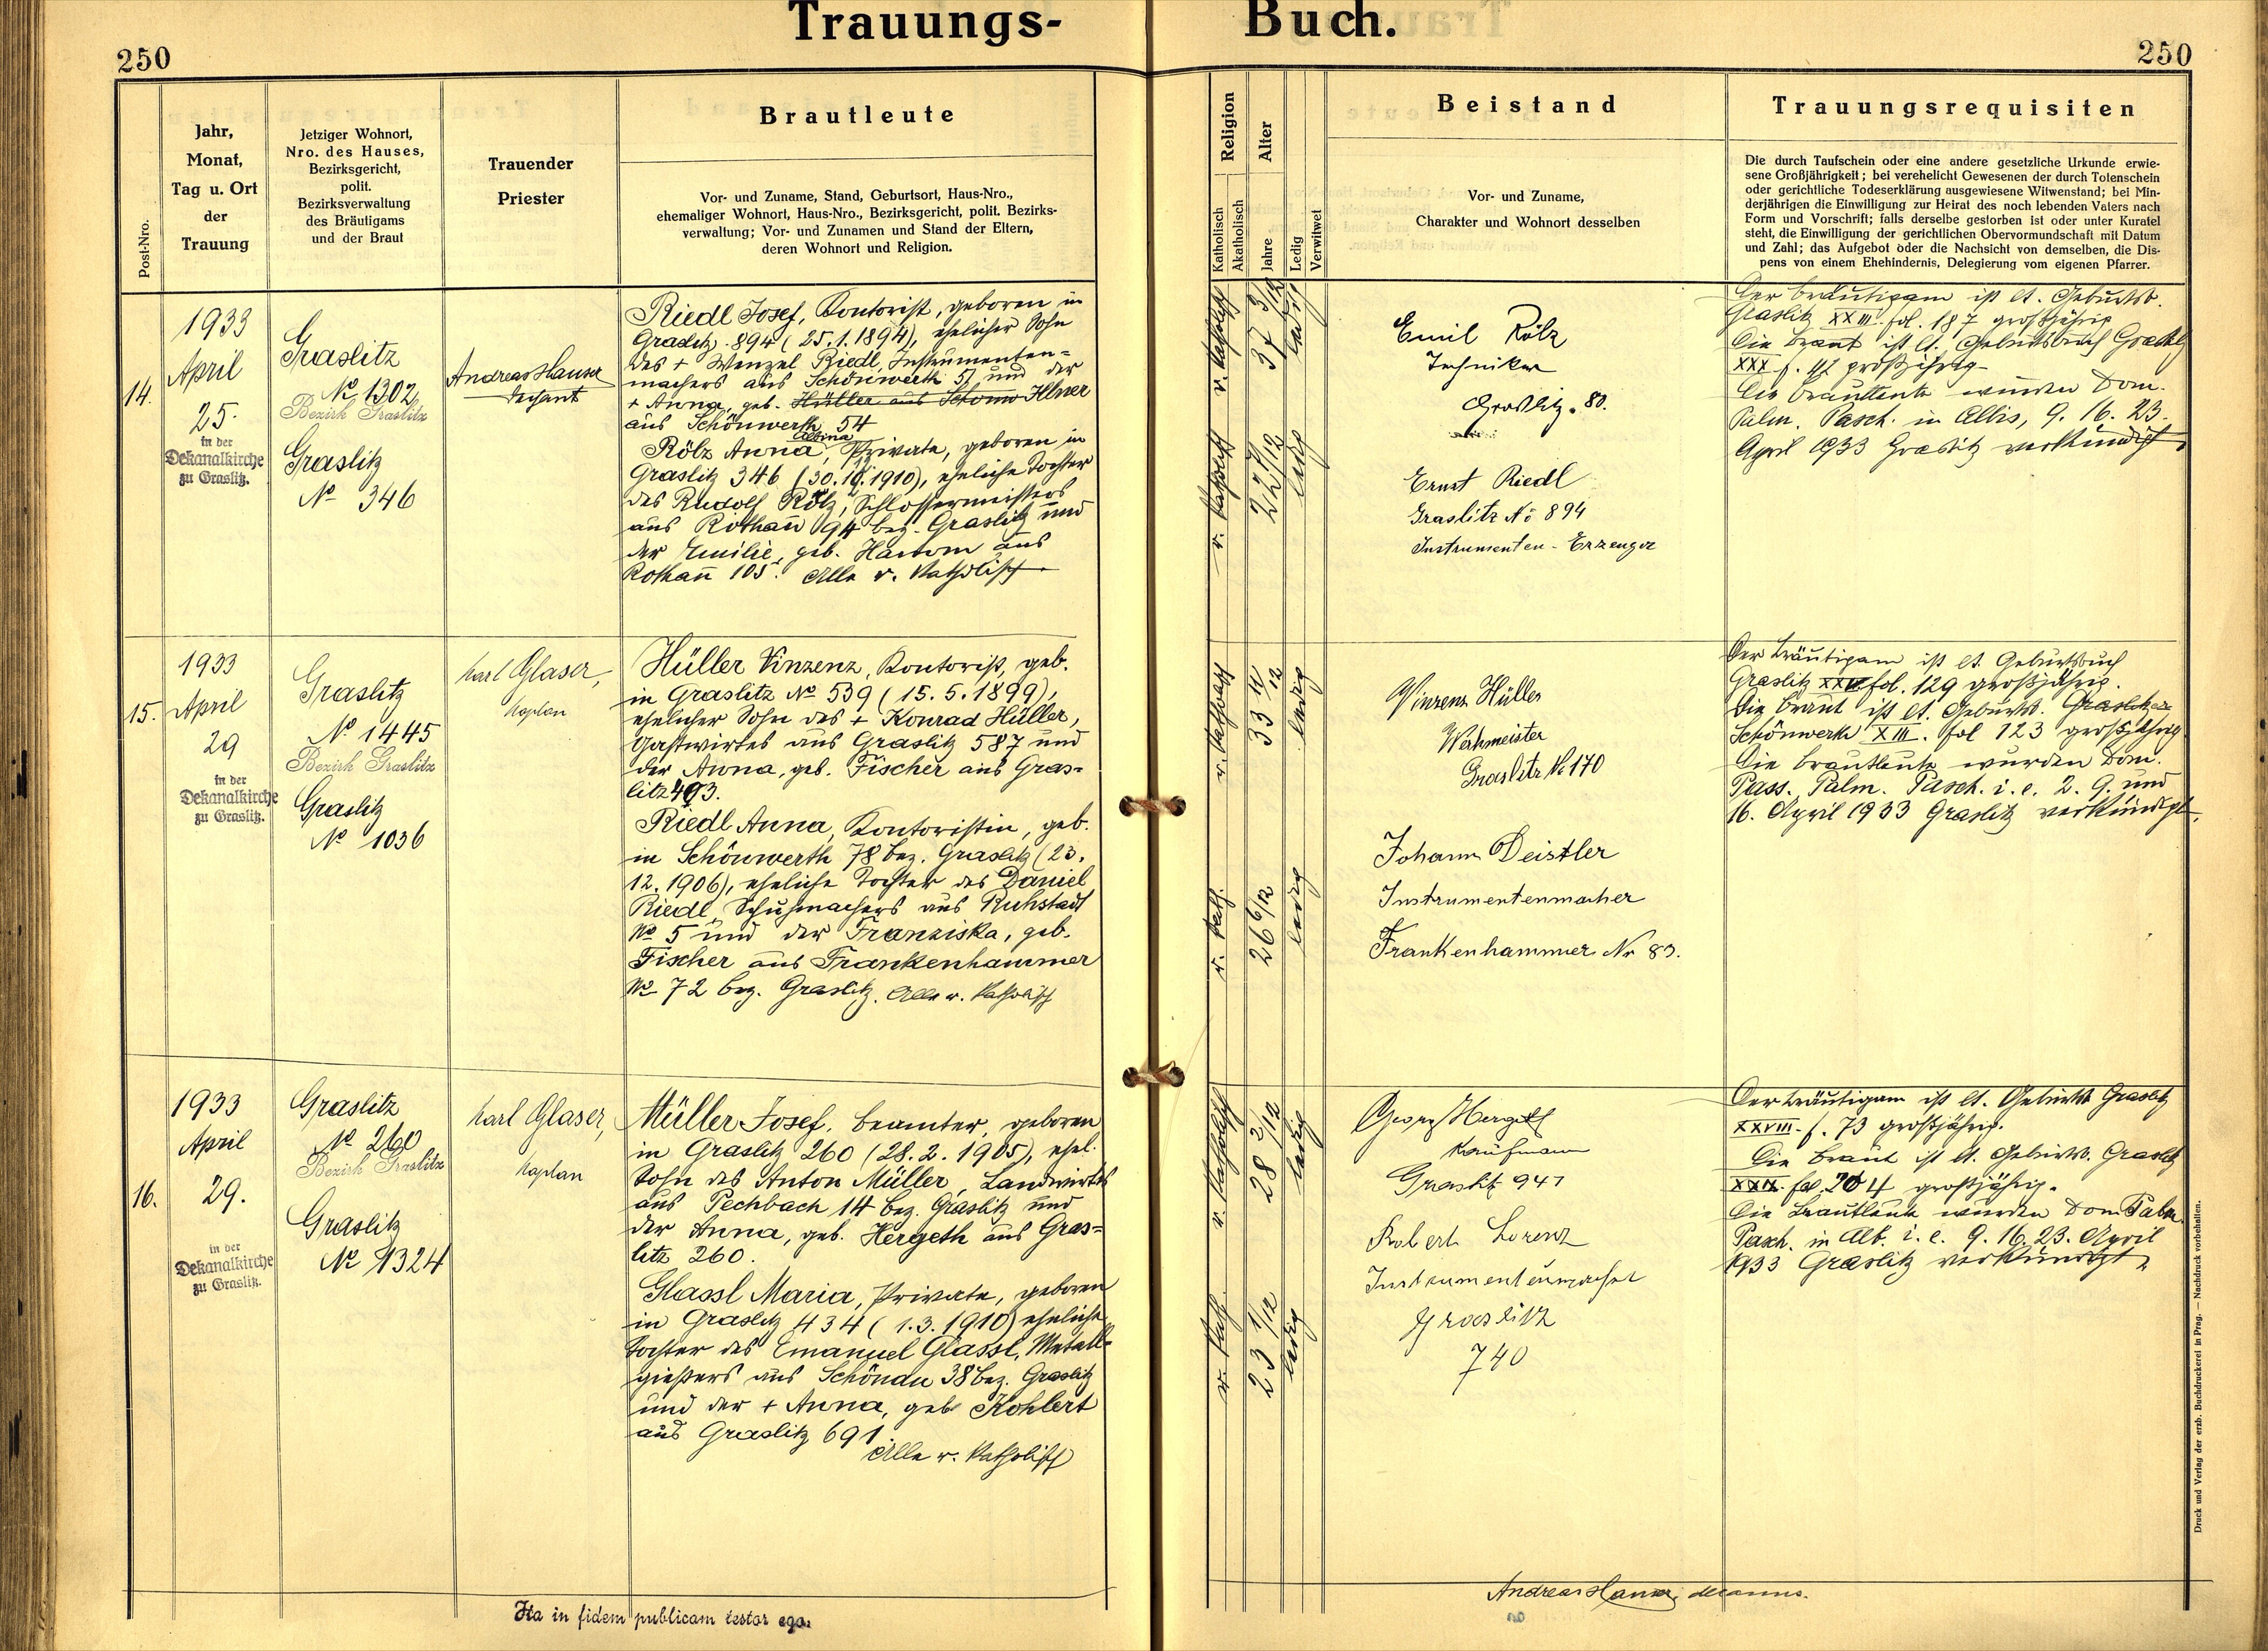 Trauungs-
Buch.
250
250
Post-Nro.
Jahr,
Monat,
Tag u. Ort
der
Trauung
Jetziger Wohnort,
Nro. des Hauses,
Bezirksgericht,
polit.
Bezirksverwaltung
des Bräutigams
und der Braut
Trauender
Priester
Brautleute
Vor- und Zuname, Stand, Geburtsort, Haus-Nro.,
ehemaliger Wohnort, Haus-Nro., Bezirksgericht, polit. Bezirks-
verwaltung; Vor- und Zunamen und Stand der Eltern,
deren Wohnort und Religion.
Religion
Katholisch
Akatholisch
Alter
Jahre
Ledig
Verwitwet
Beistand
Vor- und Zuname,
Charakter und Wohnort desselben
Trauungsrequisiten
Die durch Taufschein oder eine andere gesetzliche Urkunde erwie-
sene Großjährigkeit; bei verehelicht Gewesenen der durch Totenschein
oder gerichtliche Todeserklärung ausgewiesene Witwenstand; bei Min-
derjährigen die Einwilligung zur Heirat des noch lebenden Vaters nach
Form und Vorschrift; falls derselbe gestorben ist oder unter Kuratel
steht, die Einwilligung der gerichtlichen Obervormundschaft mit Datum
und Zahl; das Aufgebot oder die Nachsicht von demselben, die Dis-
pens von einem Ehehindernis, Delegierung vom eigenen Pfarrer.
14.
1933
April
25.
in der
Dekanalkirche
zu Graslitz.
Graslitz
No 1302
Bezirk Graslitz
Graslitz
No 346
Andreas Hauser
Dechant
Riedl Josef, Kontorist, geboren in
Graslitz 894 (25.1.1894), ehelicher Sohn
des + Wenzel Riedl, Instrumenten-
machers aus Schönwerth 51 und der
+ Anna, geb. Hüller aus Schönw Illner
aus Schönwerth 54
Albina
Rölz Anna, Private, geboren in
Graslitz 346 (30.10.1910), eheliche Tochter
des Rudolf Rölz, Schlossermeisters
aus Rothau 94 bez. Graslitz und
der Emilie, geb. aus
Rothau 105. Alle r. katholisch
r. katholisch
37 3/12
ledig
r. katholisch
22
ledig
Emil Rölz
Techniker
Graslitz 80.
Ernst Riedl
Graslitz No 894
Instrumenten-Erzeuger
Der Bräutigam ist lt. Geburtsb.
Graslitz XXIII. fol. 187 großjährig
Die Braut ist lt. Geburtsbuch Graslitz
XXX f. großjährig
Die Brautleute wurden Dom.
Palm. Pasch. in Albis, 9. 16. 23.
April 1933 Graslitz verkündigt
15.
1933
April
29
in der
Dekanalkirche
zu Graslitz.
Graslitz
No 1445
Bezirk Graslitz
Graslitz
No 1036
Karl Glaser,
Kaplan
Hüller Vinzenz, Kontorist, geb.
in Graslitz No 539 (15.5.1899),
ehelicher Sohn des + Konrad Hüller,
Gastwirtes aus Graslitz 587 und
der Anna, geb. Fischer aus Gras-
litz 493.
Riedl Anna, Kontoristin, geb.
in Schönwerth 78 bez. Graslitz (23.
12.1906), eheliche Tochter des Daniel
Riedl, Schuhmachers aus Ruhstadt
No 5 und der Franziska, geb.
Fischer aus Frankenhammer
No 72 bez. Graslitz. Alle r. katholisch
r. katholisch
33 11/12
ledig
r. kath.
26 6/12
ledig
Vinzenz Hüller
Werkmeister
Graslitz No 170
Johann Deistler
Instrumentenmacher
Frankenhammer Nr 83.
Der Bräutigam ist lt. Geburtsbuch
Graslitz fol. 129 großjährig.
Die Braut ist lt. Geburtsb. Graslitz
Schönwerth XIII. fol 123 großjährig
Die Brautleute wurden Dom.
Pass. Palm. Pasch. i. e. 2. 9. und
16. April 1933 Graslitz verkündigt.
16.
1933
April
29.
in der
Dekanalkirche
zu Graslitz.
Graslitz
No 260
Bezirk Graslitz
Graslitz
No 1324
Karl Glaser,
Kaplan
Müller Josef, Beamter, geboren
in Graslitz 260 (28.2.1905), ehel.
Sohn des Anton Müller, Landwirtes
aus Pechbach 14 bez. Graslitz und
der Anna, geb. Hergeth aus Gras-
litz 260.
Glassl Maria, Private, geboren
in Graslitz 434 (1.3.1910) eheliche
Tochter des Emanuel Glassl, Metall-
gießers aus Schönau 38 bez. Graslitz
und der + Anna, geb Kohlert
aus Graslitz 691
Alle r. katholisch
r. katholisch
28 2/12
ledig
r. kath.
23 1/12
ledig
Georg Hergeth
Kaufmann
Graslitz 941
Robert Lorenz
Instrumentenmacher
Graslitz
740
Der Bräutigam ist lt. Geburtsb Graslitz
XXVIII. f. 73 großjährig.
Die Braut ist lt. Geburtsb. Graslitz
XXIX. fol. 204 großjährig.
Die Brautleute wurden Dom Palm
Pasch. in Alb. i. e. 9. 16. 23. April
1933 Graslitz verkündigt
Ita in fidem publicam testor ego.
Andreas Hauser, decanus.
Druck und Verlag der erzb. Buchdruckerei in Prag. — Nachdruck vorbehalten.